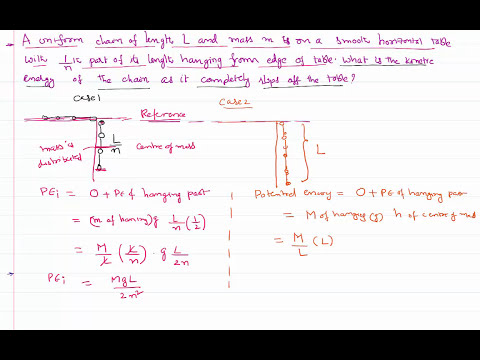 A uniform chain of length L and mass m is on a smooth horizontal table
with 1/n th part of its length hanging from edge of table. What is the kinetic
energy of the chain as it completely slips off the table?
Case1
Case2
Reference
mass is distributed
L/n
Centre of mass
L
PEi = 0 + PE of hanging part
= (m of hanging) g L/n (1/2)
= M/L (L/n) · g L/2n
PEi = MgL/2n²
Potential energy = 0 + PE of hanging part
= M of hanging (g) h of centre of mass
= M/L (L)